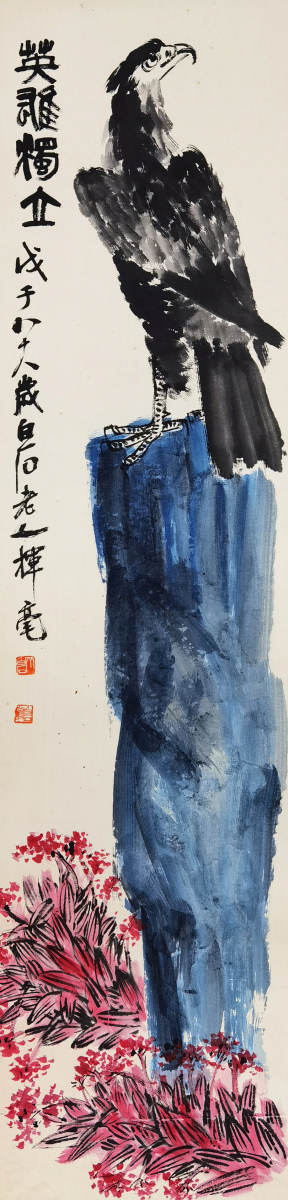 英雄獨立
戊子八十八歲白石老人揮毫